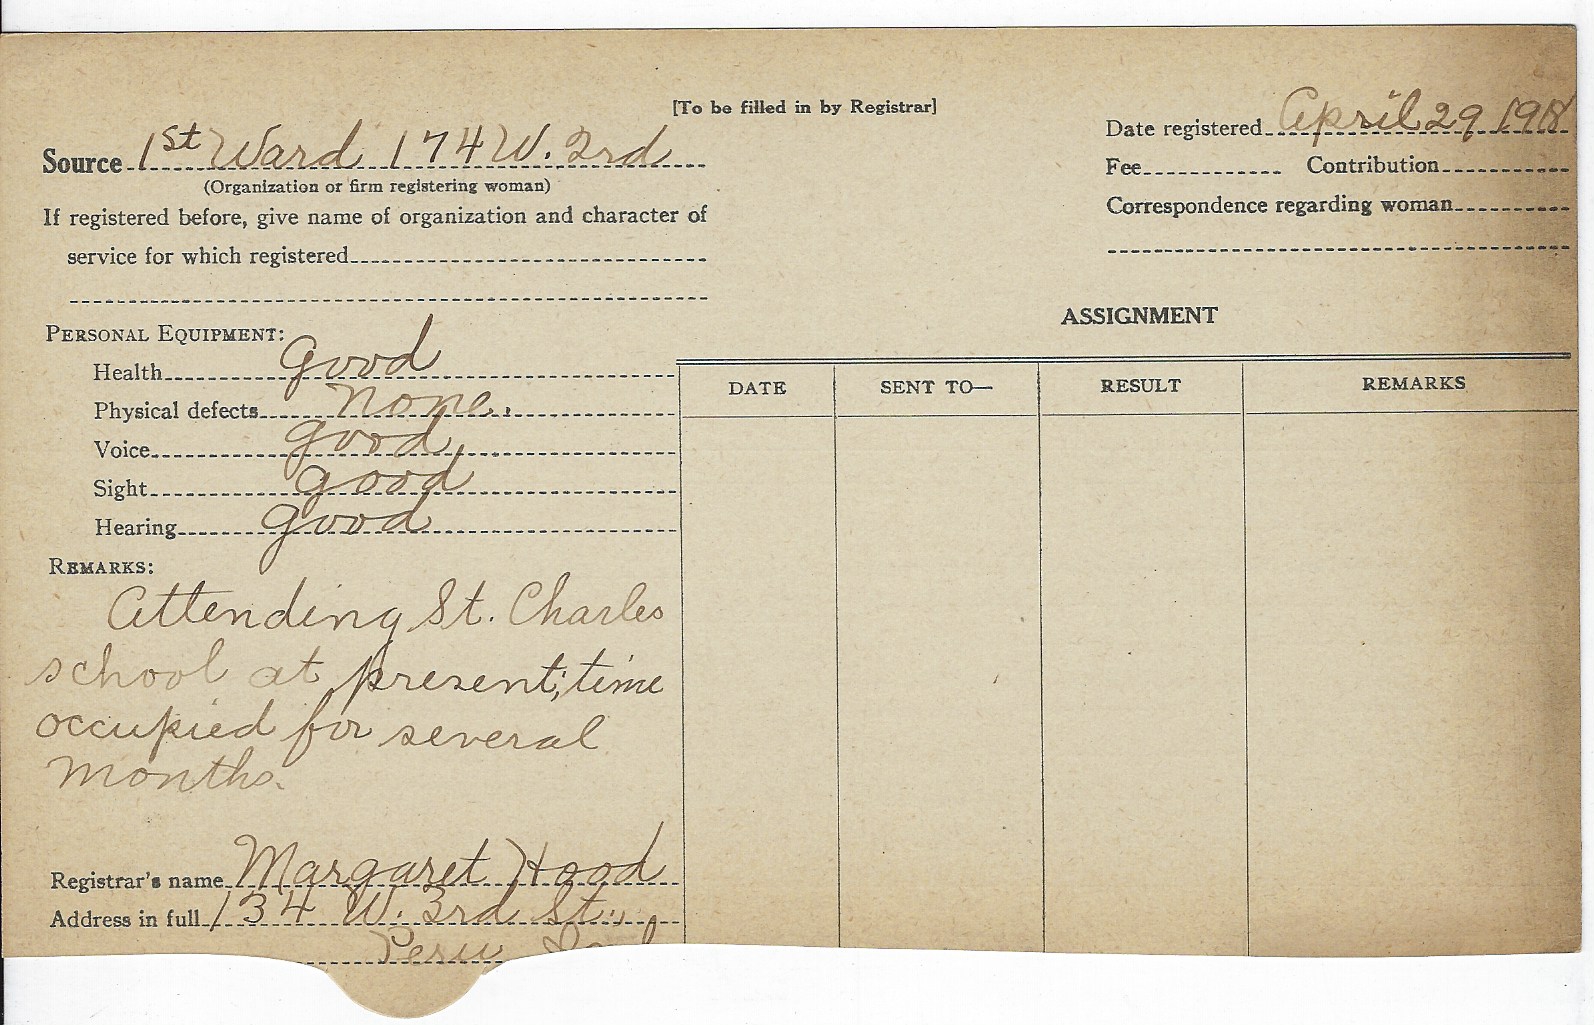 [To be filled in by Registrar]
Source 1st Ward 174 W. 2rd
(Organization or firm registering woman)
If registered before, give name of organization and character of
service for which registered
Date registered April 29 1918
Fee Contribution
Correspondence regarding woman
PERSONAL EQUIPMENT:
Health good
Physical defects none.
Voice good
Sight good
Hearing good
REMARKS:
Attending St. Charles
school at present; time
occupied for several
months.
Registrar's name Margaret Hood
Address in full 134 W. 3rd St.,
Peru
ASSIGNMENT
DATE SENT TO— RESULT REMARKS